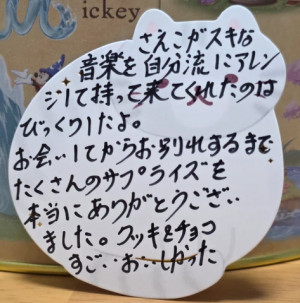 ickey
さえこがスキな
音楽を自分流にアレン
ジして持って来てくれたのは
びっくりしたよ。
お会いしてからお別れするまで
たくさんのサプライズを
本当にありがとうござい
ました。クッキとチョコ
すごいおいしかった